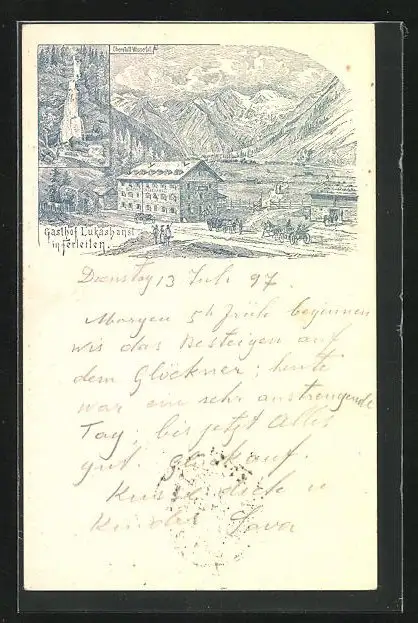 Oberstatt Wasserfall
Gasthof Lukashansl
in Ferleiten.
Dienstag 13 Juli 97.
Morgen 5h früh beginnen
wir das Besteigen auf
dem Glöckner; heute
war ein sehr anstrengende
Tag; bis jetzt Alles
gut. Glück auf.
Küsse dich u
Kinder